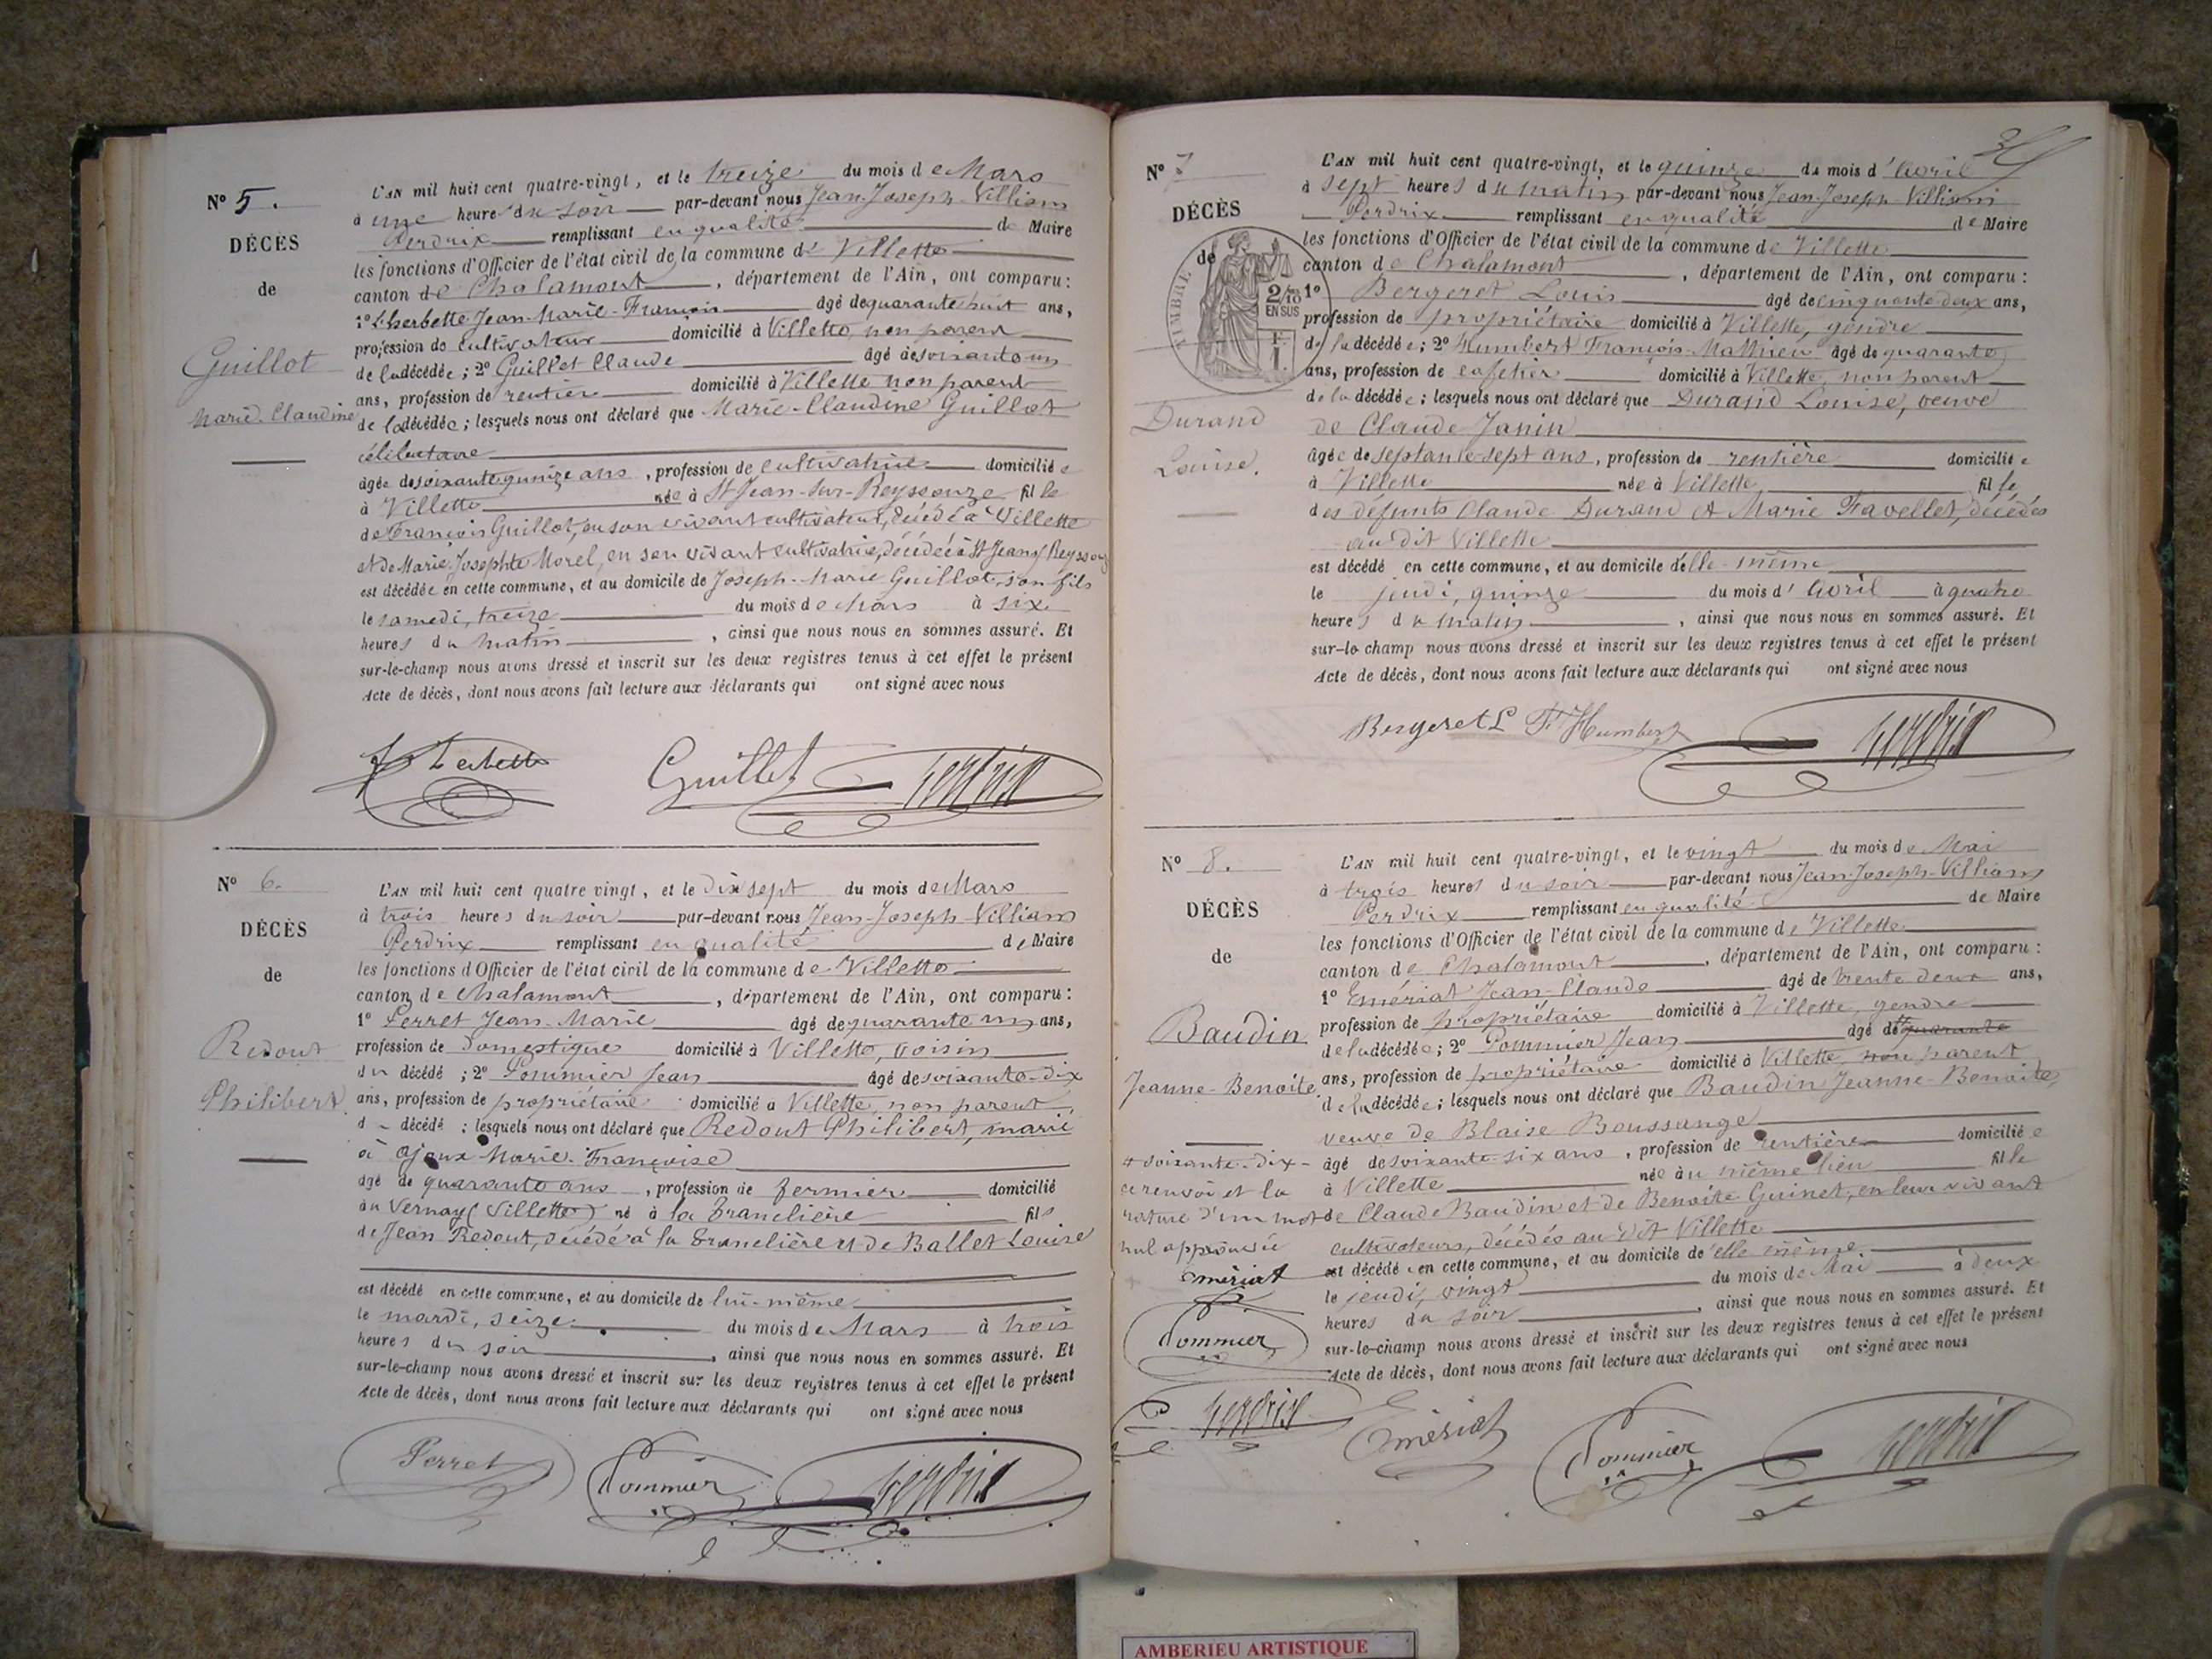 N° 5.
DÉCÈS
de
Guillot
Marie-Claudine
L'AN mil huit cent quatre-vingt, et le treize du mois de Mars
à une heure du soir par-devant nous Jean-Joseph-Villiam
Perdrix remplissant en qualité de Maire
les fonctions d'Officier de l'état civil de la commune de Villette
canton de Chalamont, département de l'Ain, ont comparu :
1° Lherbette Jean-Marie-François âgé de quarante huit ans,
profession de cultivateur domicilié à Villette, non parent
de la décédée ; 2° Guillet Claude âgé de soixante un
ans, profession de rentier domicilié à Villette non parent
de la décédée ; lesquels nous ont déclaré que Marie-Claudine Guillot
célibataire
âgée de soixante quinze ans, profession de cultivatrice domiciliée
à Villette née à St Jean-sur-Reyssouze fille
de François Guillot, en son vivant cultivateur, décédé à Villette
et de Marie-Josephte Morel, en son vivant cultivatrice, décédée à St Jean s/ Reyssouze
est décédée en cette commune, et au domicile de Joseph-Marie Guillot, son fils
le samedi, treize du mois de Mars à six
heures du matin, ainsi que nous nous en sommes assuré. Et
sur-le-champ nous avons dressé et inscrit sur les deux registres tenus à cet effet le présent
Acte de décès, dont nous avons fait lecture aux déclarants qui ont signé avec nous
Guillet Perdrix
N° 6.
DÉCÈS
de
Redout
Philibert
L'AN mil huit cent quatre vingt, et le dix sept du mois de Mars
à trois heures du soir par-devant nous Jean-Joseph-Villiam
Perdrix remplissant en qualité de Maire
les fonctions d'Officier de l'état civil de la commune de Villette
canton de Chalamont, département de l'Ain, ont comparu :
1° Perret Jean-Marie âgé de quarante un ans,
profession de domestique domicilié à Villette, voisin
du décédé ; 2° Pommier Jean âgé de soixante-dix
ans, profession de propriétaire domicilié à Villette, non parent
d décédé ; lesquels nous ont déclaré que Redout Philibert, marié
à Ajoux Marie-Françoise
âgé de quarante ans, profession de fermier domicilié
au Vernay (Villette) né à la Tranclière fils
de Jean Redout, décédé à la Tranclière et de Ballet Louise
est décédé en cette commune, et au domicile de lui-même
le mardi, seize du mois de Mars à trois
heures du soir, ainsi que nous nous en sommes assuré. Et
sur-le-champ nous avons dressé et inscrit sur les deux registres tenus à cet effet le présent
Acte de décès, dont nous avons fait lecture aux déclarants qui ont signé avec nous
Perret Pommier Perdrix
N° 7
DÉCÈS
de
TIMBRE
2/10
EN SUS
1 F.
Durand
Louise.
L'AN mil huit cent quatre-vingt, et le quinze du mois d'Avril
à sept heures du matin par-devant nous Jean-Joseph-Villiam
Perdrix remplissant en qualité de Maire
les fonctions d'Officier de l'état civil de la commune de Villette
canton de Chalamont, département de l'Ain, ont comparu :
1° Bergeret Louis âgé de cinquante-deux ans,
profession de propriétaire domicilié à Villette, gendre
de la décédée ; 2° Humbert François-Mathieu âgé de quarante
ans, profession de cafetier domicilié à Villette, non parent
de la décédée ; lesquels nous ont déclaré que Durand Louise, veuve
de Claude Janin
âgée de septante-sept ans, profession de rentière domiciliée
à Villette née à Villette, fille
des défunts Claude Durand et Marie Favellet, décédés
au dit Villette
est décédé en cette commune, et au domicile d'elle-même
le jeudi, quinze du mois d'Avril à quatre
heures du matin, ainsi que nous nous en sommes assuré. Et
sur-le champ nous avons dressé et inscrit sur les deux registres tenus à cet effet le présent
Acte de décès, dont nous avons fait lecture aux déclarants qui ont signé avec nous
Bergeret L F Humbert Perdrix
N° 8.
DÉCÈS
de
Baudin
Jeanne-Benoite
L'AN mil huit cent quatre-vingt, et le vingt du mois de Mai
à trois heures du soir par-devant nous Jean-Joseph-Villiam
Perdrix remplissant en qualité de Maire
les fonctions d'Officier de l'état civil de la commune de Villette
canton de Chalamont, département de l'Ain, ont comparu :
1° Emériat Jean-Claude âgé de trente deux ans,
profession de propriétaire domicilié à Villette, gendre
de la décédée ; 2° Pommier Jean âgé de # quarante
ans, profession de propriétaire domicilié à Villette non parent
de la décédée ; lesquels nous ont déclaré que Baudin Jeanne-Benoite,
veuve de Blaise Boussange
âgé de soixante-six ans, profession de rentière domiciliée
à Villette née au même lieu fille
de Claude Baudin et de Benoite Guinet, en leur vivant
cultivateurs, décédés au dit Villette
est décédé en cette commune, et au domicile de elle même
le jeudi, vingt du mois de Mai à deux
heures du soir, ainsi que nous nous en sommes assuré. Et
sur-le-champ nous avons dressé et inscrit sur les deux registres tenus à cet effet le présent
Acte de décès, dont nous avons fait lecture aux déclarants qui ont signé avec nous
# soixante-dix-
ce renvoi et la
rature d'un mot
nul approuvée
Emériat
Pommier
Perdrix Emériat Pommier Perdrix
AMBERIEU ARTISTIQUE